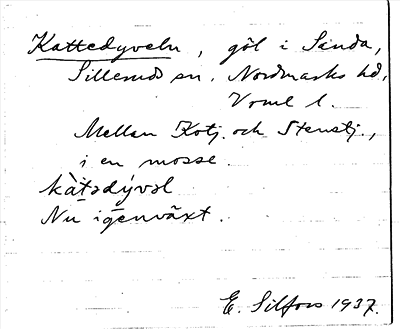 Kattedyveln, göl i Sanda,
Silleruds sn. Nordmarks hd,
Värml l.
Mellan Kotj. och Stenstj.,
i en mosse.
kàtədývəl
Nu igenväxt.
E. Silfors 1937.